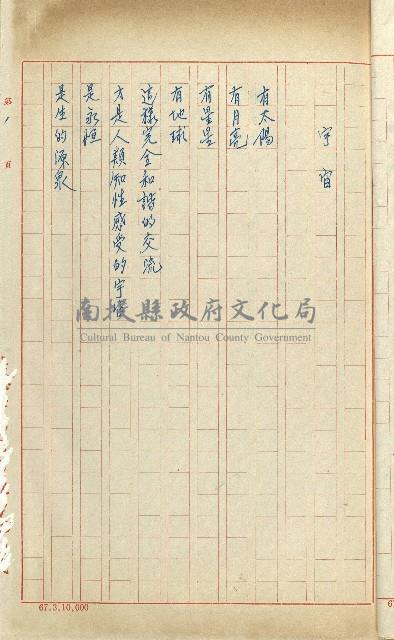 宇宙
有太陽
有月亮
有星星
有地球
這樣完全和諧的交流
才是人類知性感受的宇宙
是永恒
是生的源泉
第
頁
南投縣政府文化局
Cultural Bureau of Nantou County Government
67.3,10,000
6